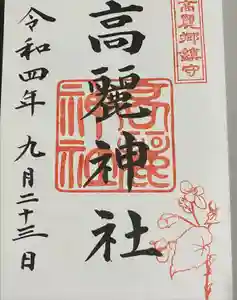 高麗郷鎮守
高麗神社
高麗
神社
令和四年九月二十三日